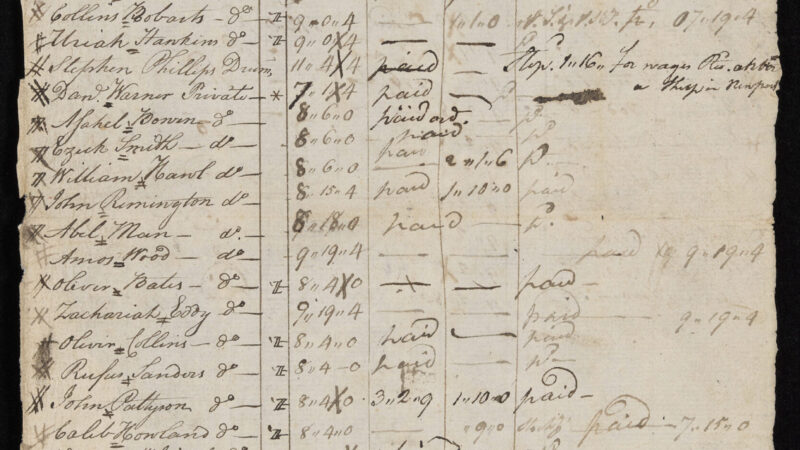 Collins Robarts do — 9 „ 0 „ 4 — 1 „ 1 „ 0 07 „ 19 „ 4
Uriah Hawkins do — 9 „ 0 4 — — po
Stephen Phillips Drum 11 „ 4 4 paid — Stop. 1 „ 16 „ for wages
Danl. Warner Private — * 7 „ 1 4 paid — a Ship in Newport
Asahel Bowen — do 8 „ 6 „ 0 paid ord. — po
Ezick Smith — do 8 „ 6 „ 0 paid — po
William Hawl do 8 „ 6 „ 0 paid 2 „ 1 „ 6 po —
John Rimington do 8 „ 15 „ 4 paid 1 „ 10 „ 0 paid
Abel Man — do — 8 „ 18 „ 0 paid — po
Amos Wood — do 9 „ 19 „ 4 — — paid 9 „ 19 „ 4
Oliver Bates — do — 8 „ 4 0 — — paid —
Zachariah Eddy do — 9 „ 19 „ 4 — — paid 9 „ 19 „ 4
Olivir Collins — do — 8 „ 4 „ 0 paid — paid
Rufus Sanders do — 8 „ 4 – 0 paid — po —
John Pattyson do — 8 „ 4 0 3 „ 2 „ 9 1 „ 10 „ 0 paid —
Caleb Howland do — 8 „ 4 „ 0 — „ 9 „ 0 paid — 7 „ 15 „ 0